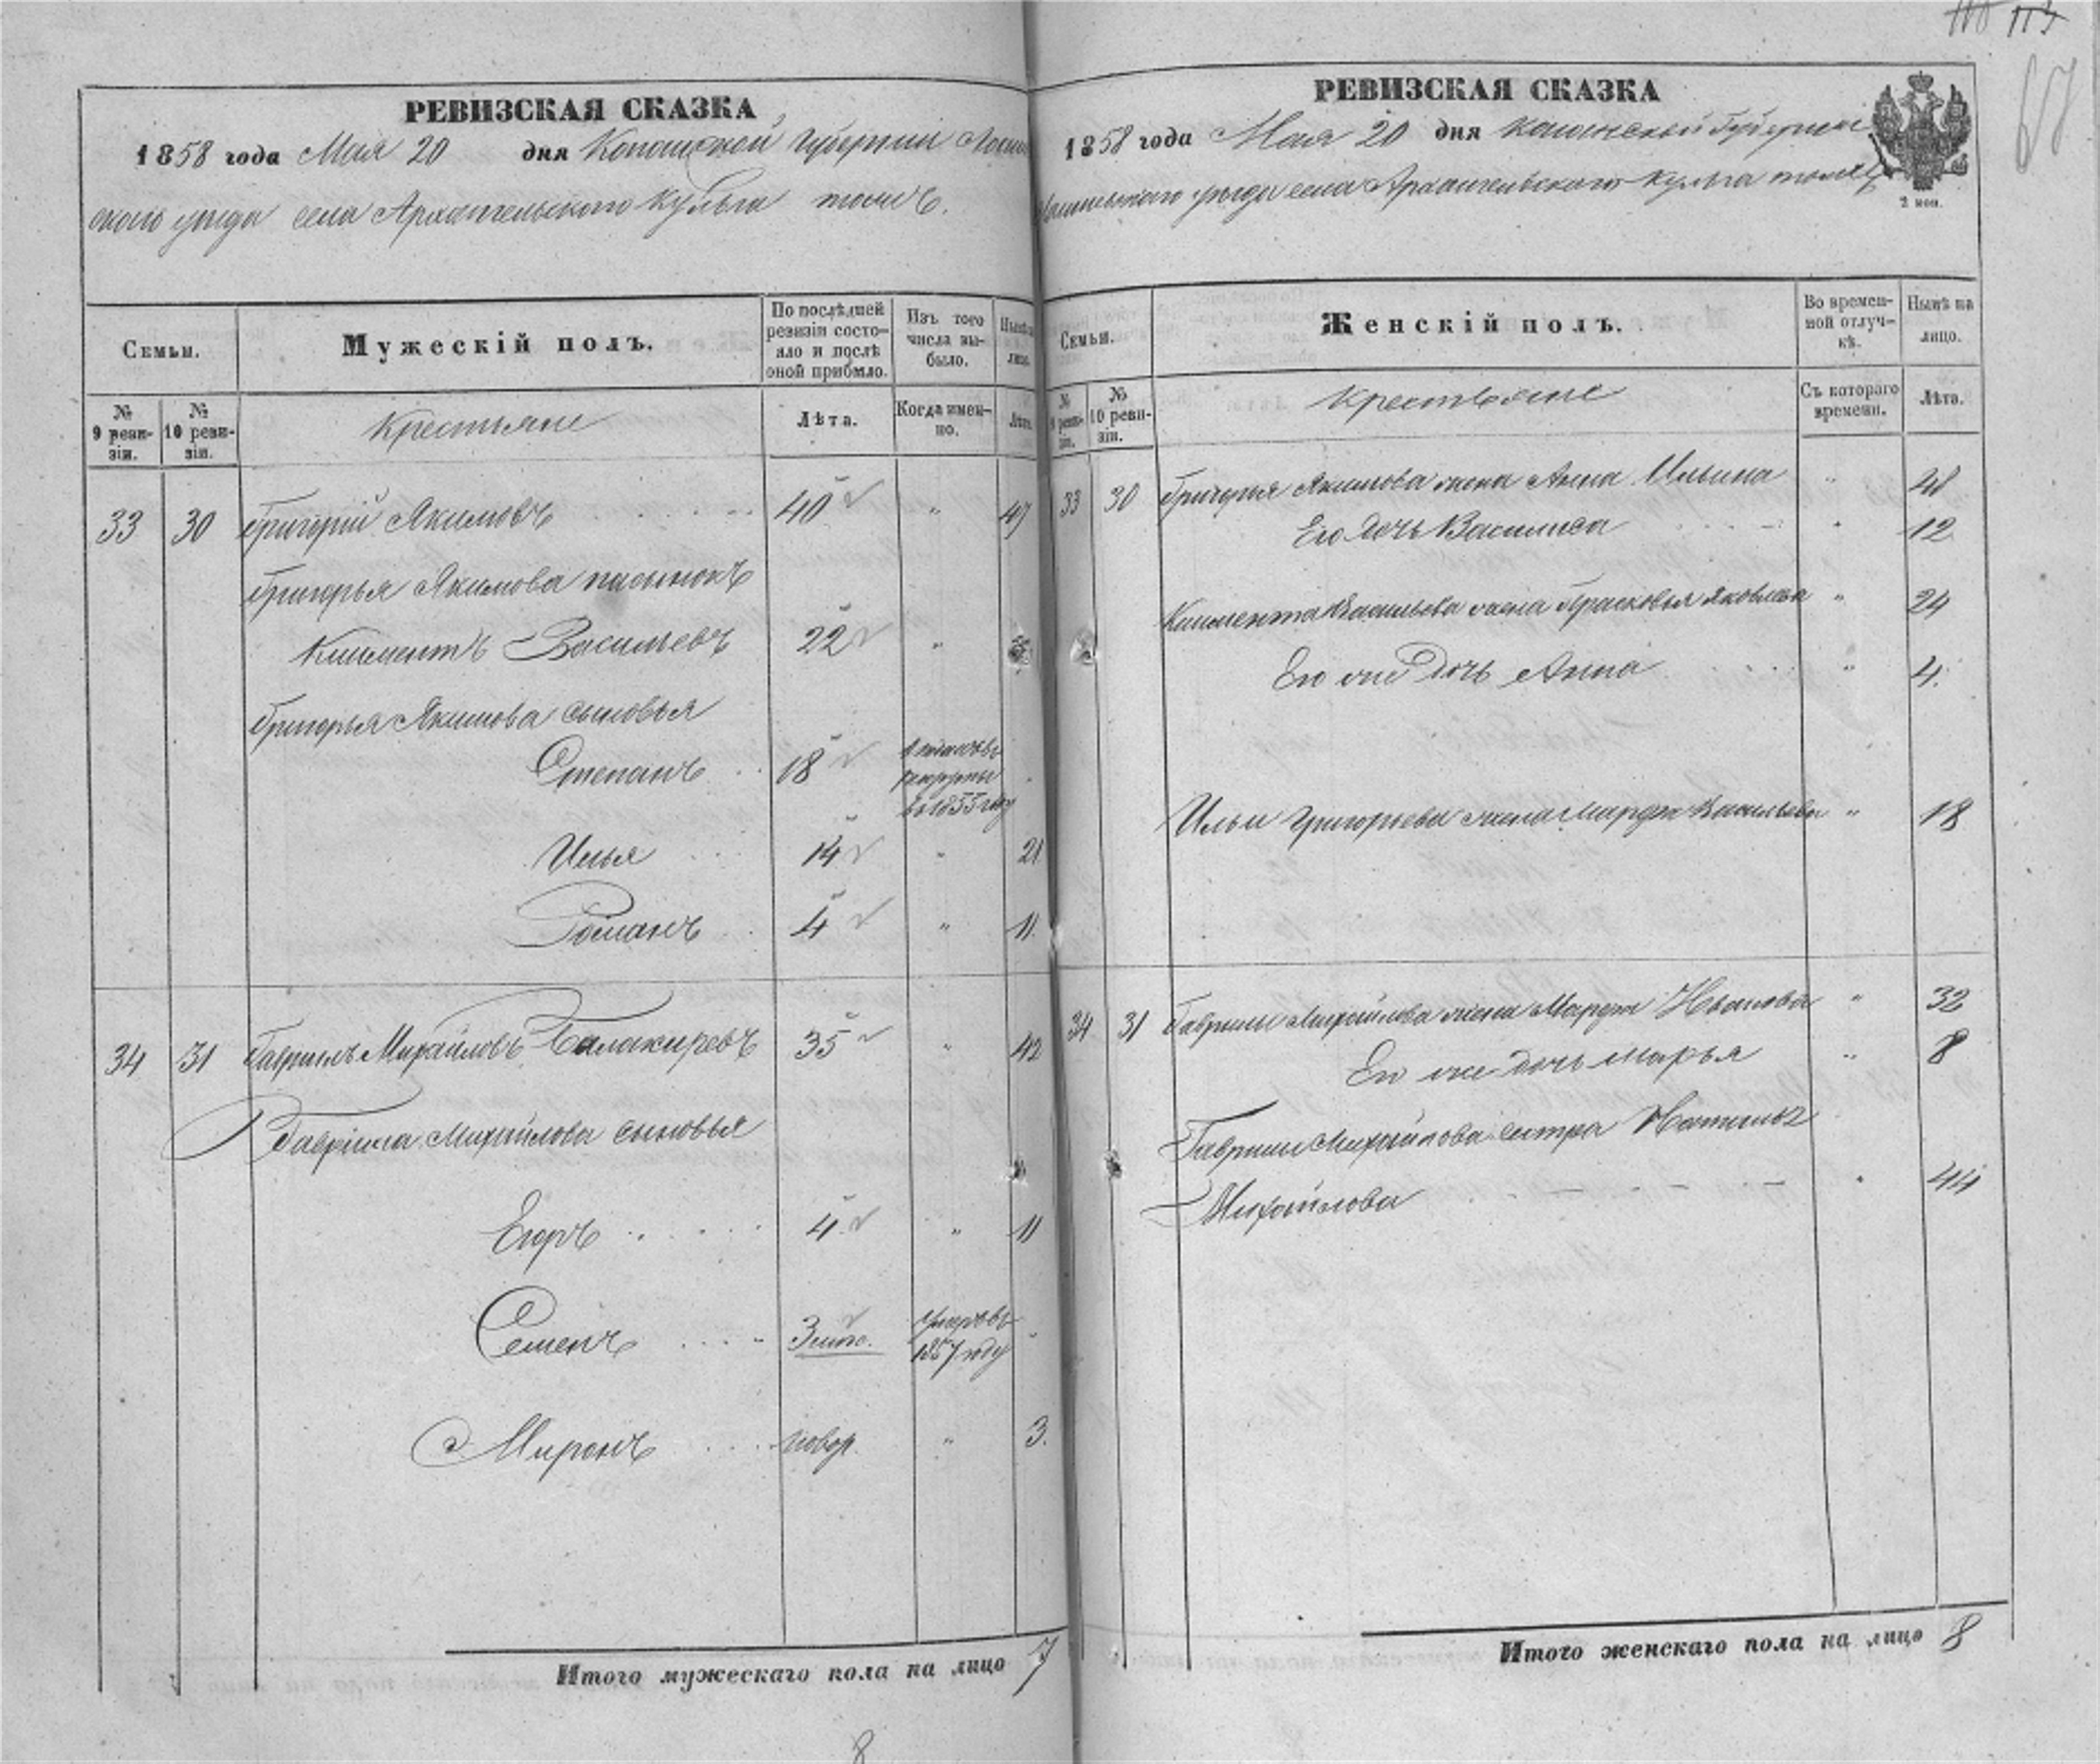 РЕВИЗСКАЯ СКАЗКА
1858 года Мая 20 дня Губерніи
скаго уѣзда села Архангельскаго Кульга тожъ.
Семьи.
Мужескій полъ.
По послѣдней ревизіи состояло и послѣ оной прибыло.
Изъ того числа выбыло.
Нынѣ на лицо.
№ 9 ревизіи.
№ 10 ревизіи.
Крестьяне
Лѣта.
Когда именно.
Лѣта.
33 30 Григорій Якимовъ 40 " 47
Григорья Якимова пасынокъ
Климентъ Васильевъ 22 "
Григорья Якимова сыновья
Степанъ 18 рекруты въ 1855 году
Илья 14 " 21
Романъ 4 " 11.
34 31 Гаврилъ Михайловъ Балакиревъ 35 " 42
Гаврила Михайлова сыновья
Егоръ 4 " 11
Семенъ умеръ въ 1857 году
Миронъ новор. " 3.
Итого мужескаго пола на лицо 7
8
113
67
РЕВИЗСКАЯ СКАЗКА
1858 года Мая 20 дня Губерніи
уѣзда села Архангельскаго Кульга тожъ
2 коп.
Семьи.
Женскій полъ.
Во временной отлучкѣ.
Нынѣ на лицо.
№ 9 ревизіи.
№ 10 ревизіи.
Крестьяне
Съ котораго времени.
Лѣта.
33 30 Григорья Якимова жена Анна Ильина " 48
Его дочь Василиса " 12
Климента Васильева жена Прасковья Яковлева " 24
Его же дочь Анна " 4.
Ильи Григорьева жена Марфа Васильева " 18
34 31 Гаврилы Михайлова жена Марфа Иванова " 32
Его же дочь Марья " 8
Гаврилы Михайлова сестра
Михайлова " 44
Итого женскаго пола на лицо 8